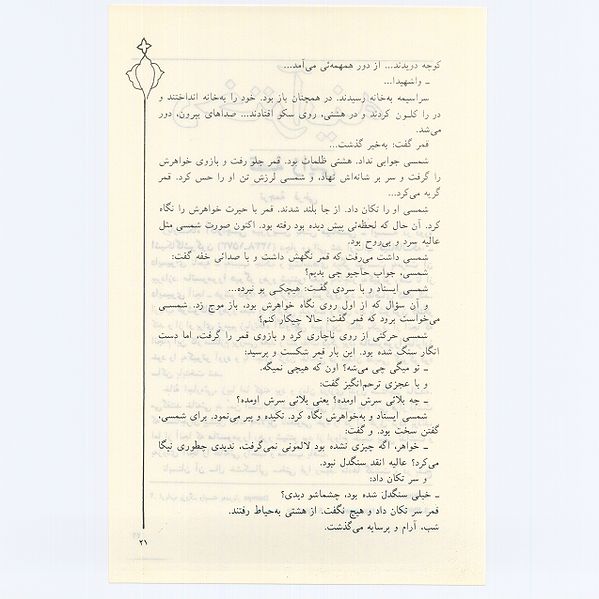 کوچه دویدند... از دور همهمه‌ئی می‌آمد...
ـ واشهیدا...
سراسیمه به‌خانه رسیدند. در همچنان باز بود. خود را به‌خانه انداختند و
در را کلون کردند و در هشتی، روی سکو افتادند... صداهای بیرون، دور
می‌شد.
قمر گفت: به‌خیر گذشت...
شمسی جوابی نداد. هشتی ظلمات بود. قمر جلو رفت و بازوی خواهرش
را گرفت و سر بر شانه‌اش نهاد، و شمسی لرزش تن او را حس کرد. قمر
گریه می‌کرد...
شمسی او را تکان داد. از جا بلند شدند. قمر با حیرت خواهرش را نگاه
کرد. آن حال که لحظه‌ئی پیش دیده بود رفته بود. اکنون صورت شمسی مثل
عالیه سرد و بی‌روح بود.
شمسی داشت می‌رفت که قمر نگهش داشت و با صدائی خفه گفت:
شمسی، جواب حاجیو چی بدیم؟
شمسی ایستاد و با سردی گفت: هیچکی بو نبرده...
و آن سؤال که از اول روی نگاه خواهرش بود، باز موج زد. شمسی
می‌خواست برود که قمر گفت: حالا چیکار کنم؟
شمسی حرکتی از روی ناچاری کرد و بازوی قمر را گرفت، اما دست
انگار سنگ شده بود. این بار قمر شکست و پرسید:
ـ تو میگی چی می‌شه؟ اون که هیچی نمیگه.
و با عجزی ترحم‌انگیز گفت:
ـ چه بلائی سرش اومده؟ یعنی بلائی سرش اومده؟
شمسی ایستاد و به‌خواهرش نگاه کرد. تکیده و پیر می‌نمود. برای شمسی،
گفتن سخت بود. و گفت:
ـ خواهر، اگه چیزی نشده بود لالمونی نمی‌گرفت، ندیدی چطوری نیگا
می‌کرد؟ عالیه انقد سنگدل نبود.
و سر تکان داد:
ـ خیلی سنگدل شده بود، چشماشو دیدی؟
قمر سر تکان داد و هیچ نگفت. از هشتی به‌حیاط رفتند.
شب، آرام و پرسایه می‌گذشت.
۲۱